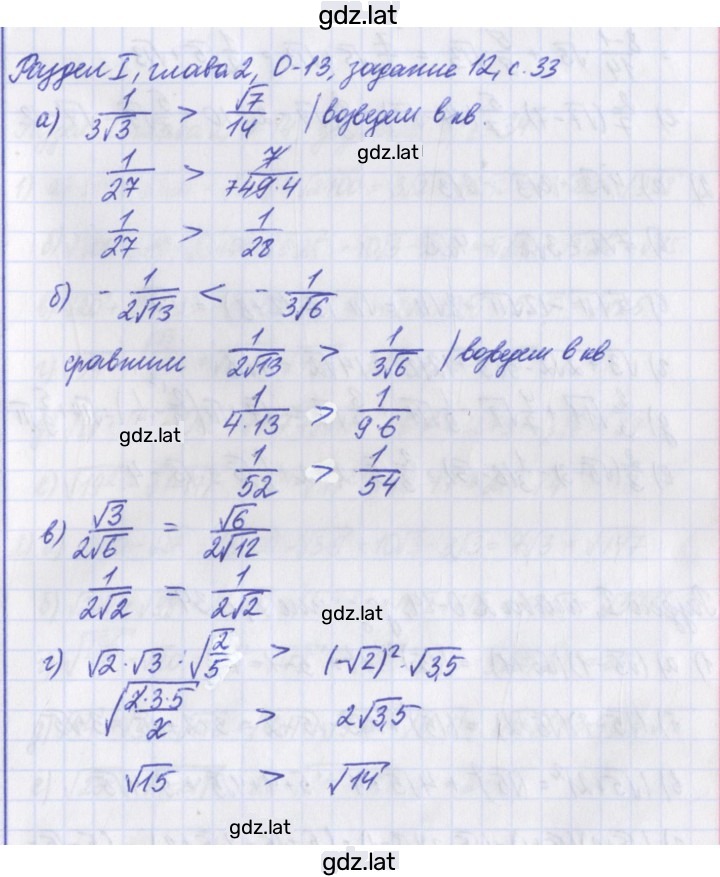 gdz.lat
Раздел I, глава 2, О-13, задание 12, с. 33
а) 1/(3√3) > √7/14 | возведем в кв.
gdz.lat
1/27 > 7/(7 49·4)
1/27 > 1/28
б) - 1/(2√13) < - 1/(3√6)
сравним 1/(2√13) > 1/(3√6) | возведем в кв.
1/(4·13) > 1/(9·6)
gdz.lat
1/52 > 1/54
в) √3/(2√6) = √6/(2√12)
1/(2√2) = 1/(2√2)
gdz.lat
г) √2·√3 : √(2/5) > (-√2)²·√3,5
√(2·3·5/2) > 2√3,5
√15 > √14
gdz.lat
gdz.lat